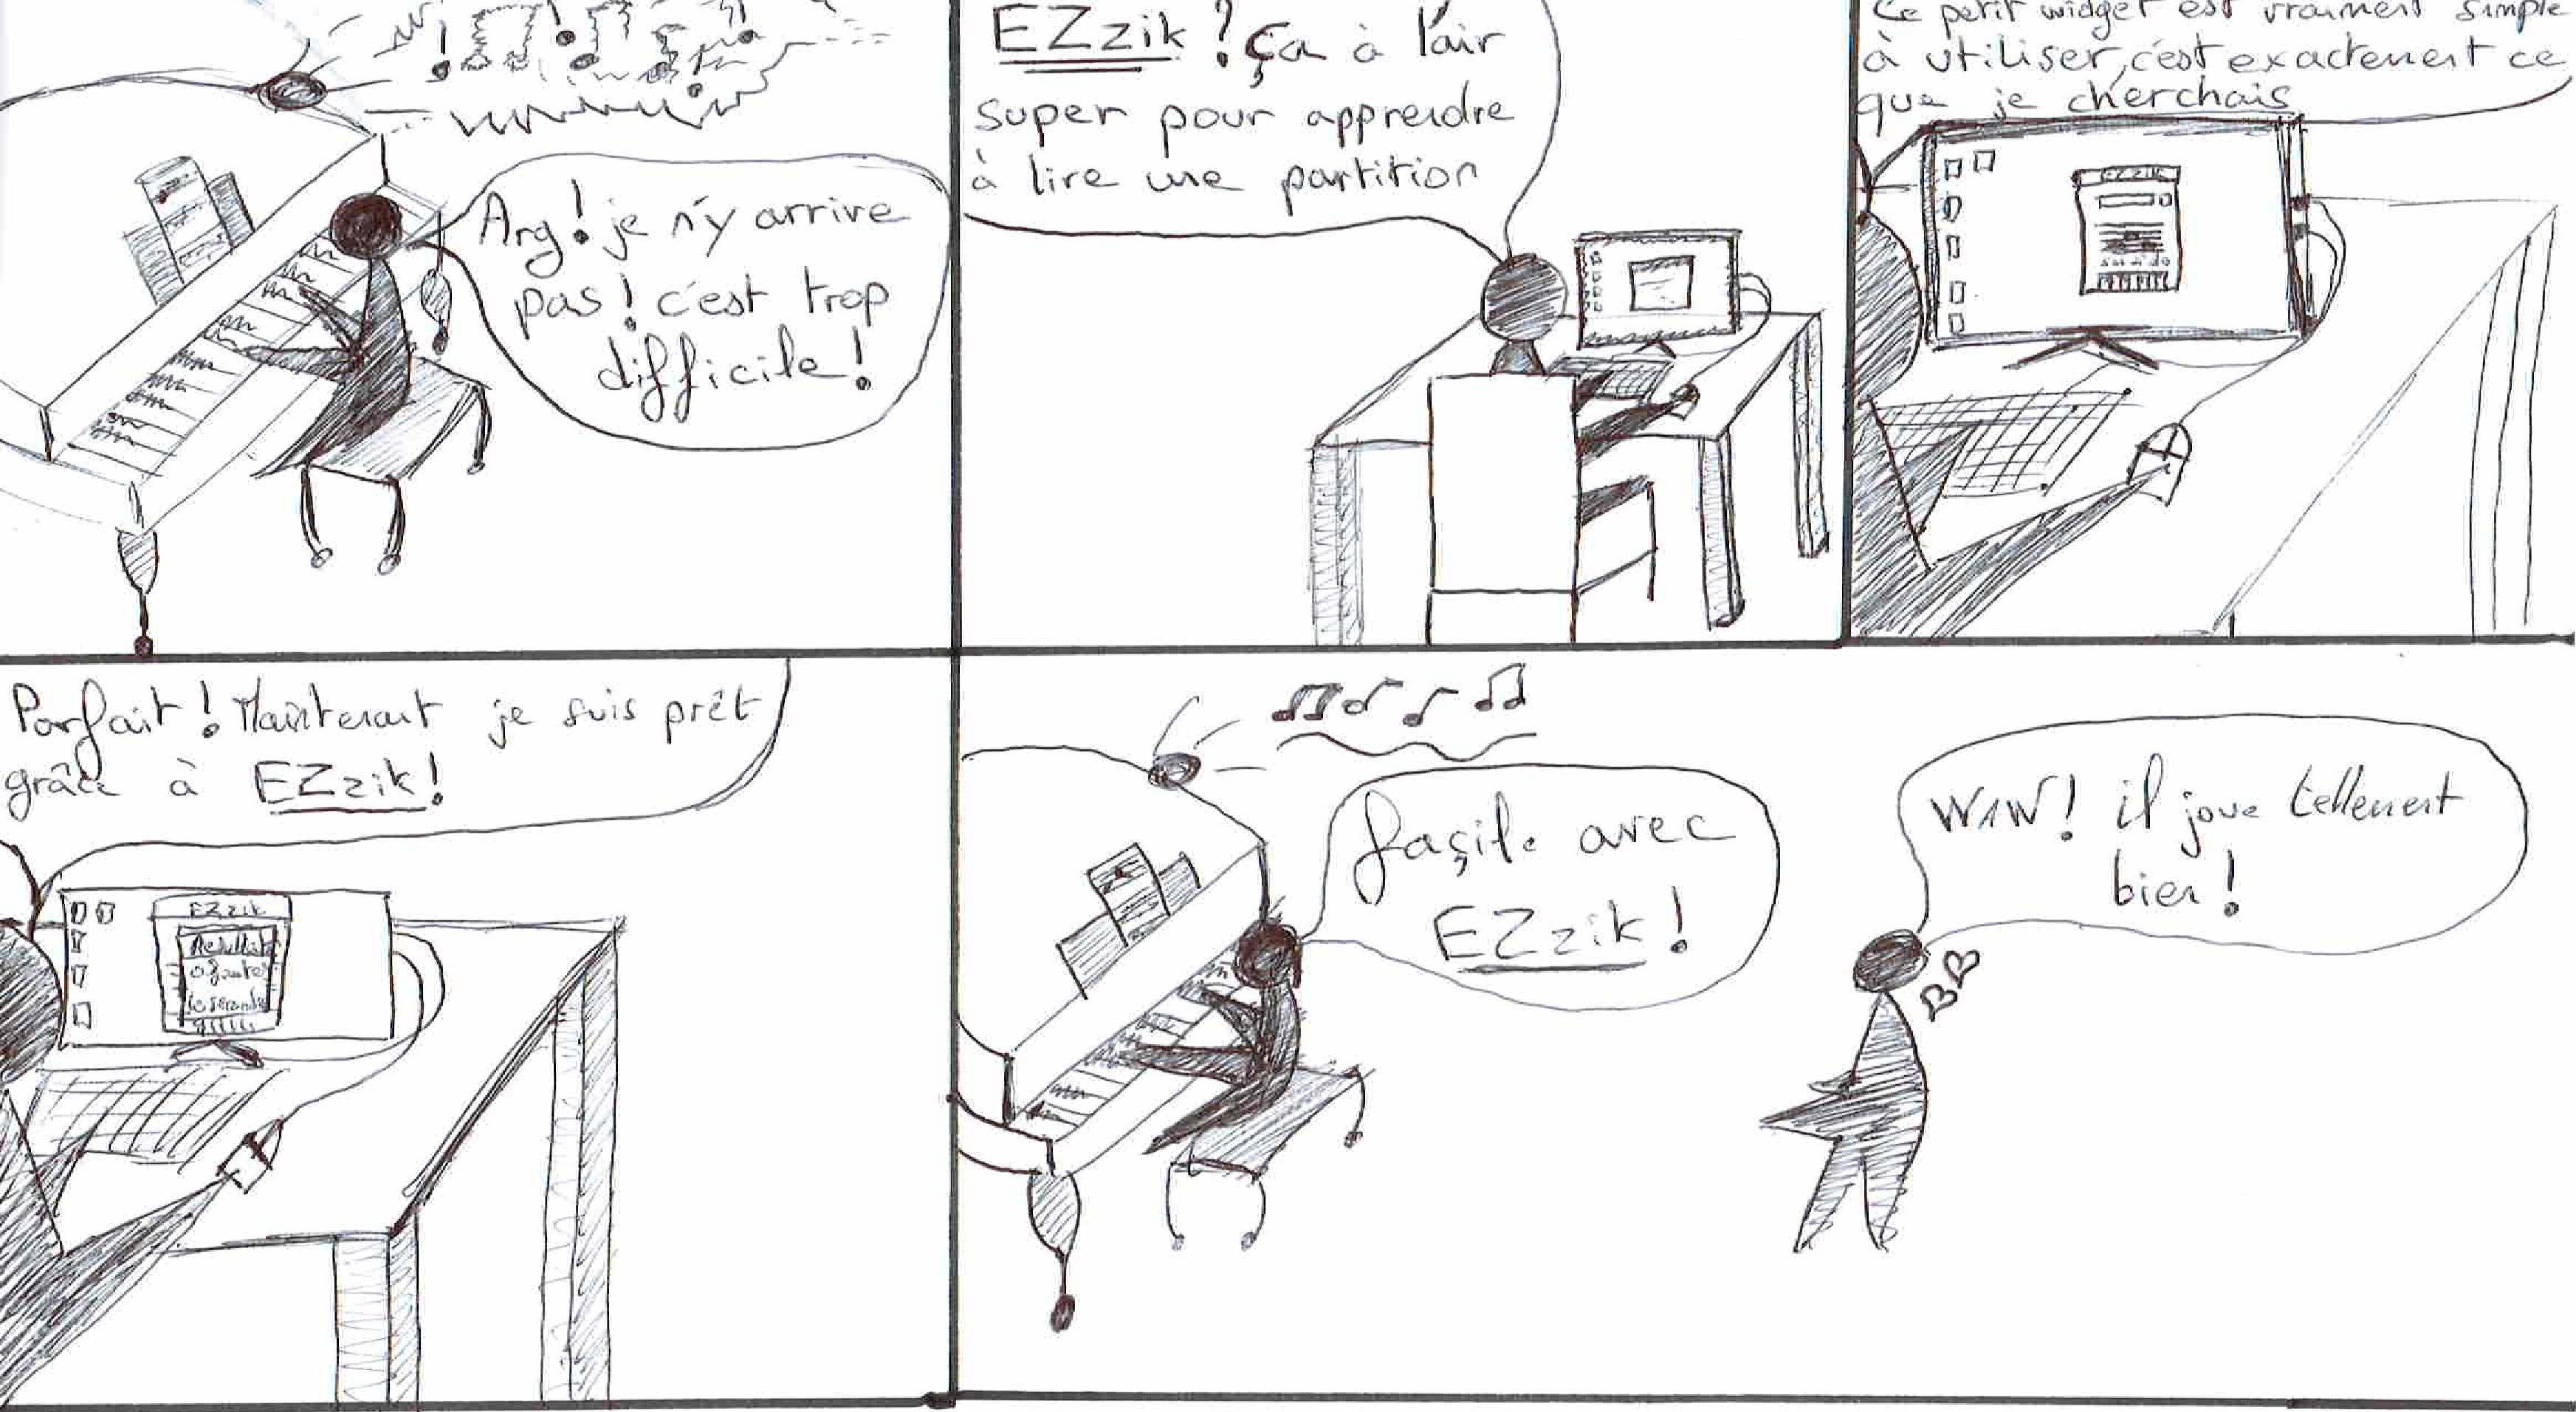 Arg! je n'y arrive
pas! c'est trop
difficile!
EZzik? Ça à l'air
super pour apprendre
à lire une partition
Ce petit widget est vraiment simple
à utiliser, c'est exactement ce
que je cherchais
EZZIK
Parfait! Maintenant je suis prêt
grâce à EZzik!
EZzik
Resultats
0 fautes
façile avec
EZzik!
WAW! il joue tellement
bien!